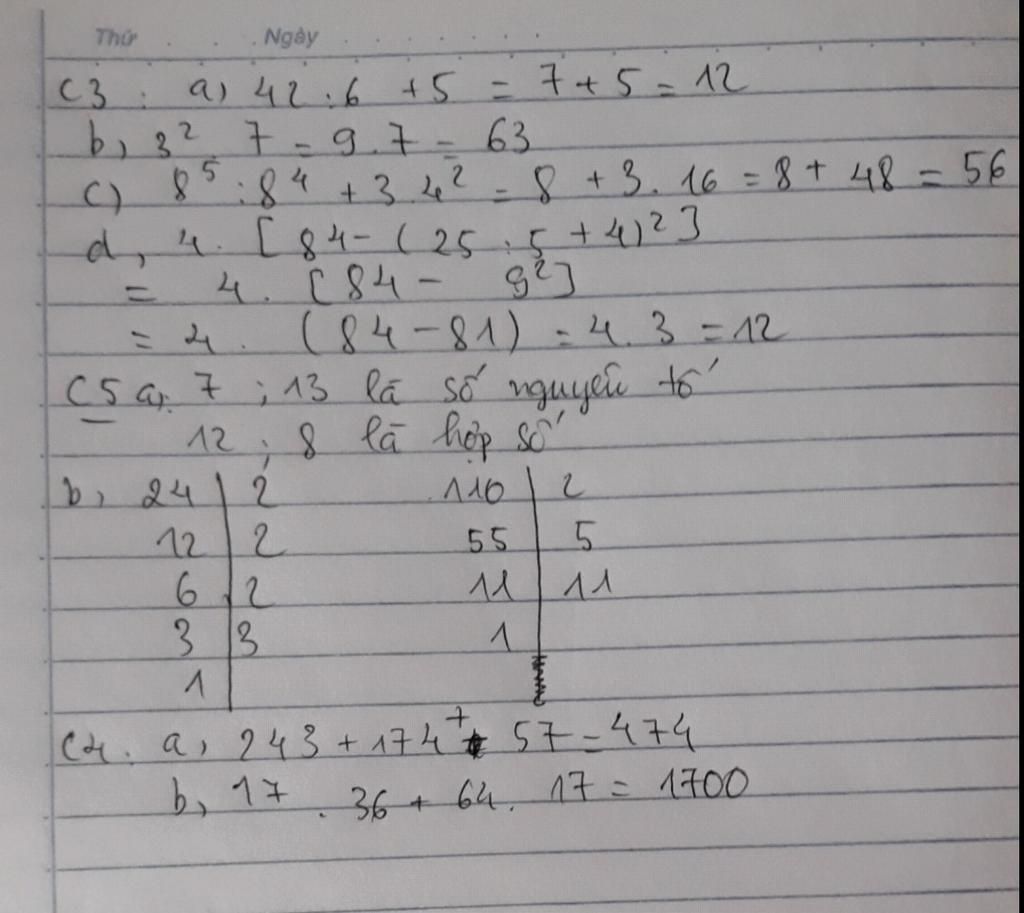 Thứ . . . Ngày . . . . . . .
C3 : a) 42 : 6 + 5 = 7 + 5 = 12
b, 3² 7 = 9 . 7 = 63
c) 8⁵ : 8⁴ + 3 . 4² = 8 + 3 . 16 = 8 + 48 = 56
d, 4 . [ 84 - ( 25 : 5 + 4)² ]
= 4 . [ 84 - 9² ]
= 4 . ( 84 - 81 ) = 4 . 3 = 12
C5 a, 7 ; 13 là số nguyên tố
12 ; 8 là hợp số
b, 24 | 2 110 | 2
12 | 2 55 | 5
6 | 2 11 | 11
3 | 3 1 |
1 |
C4 . a, 243 + 174 + 57 = 474
b, 17 . 36 + 64 . 17 = 1700